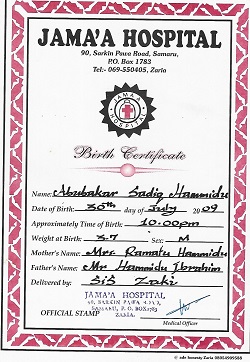 JAMA'A HOSPITAL
90, Sarkin Pawa Road, Samaru,
P.O. Box 1783
Tel:- 069-550405, Zaria
JAMA'A
HOSPITAL
Birth Certificate
Name: Abubakar Sadiq Hammidu
Date of Birth: 30th day of July 2009
Approximate Time of Birth: 10.00pm
Weight at Birth: 3.7 Sex: M
Mother's Name: Mrs Ramatu Hammidu
Father's Name: Mr Hammidu Ibrahim
Delivered by: SIS Zaki
JAMA'A HOSPITAL
90, SARKIN PAWA ROAD,
SAMARU, P.O. BOX1783
ZARIA.
OFFICIAL STAMP
Medical Officer